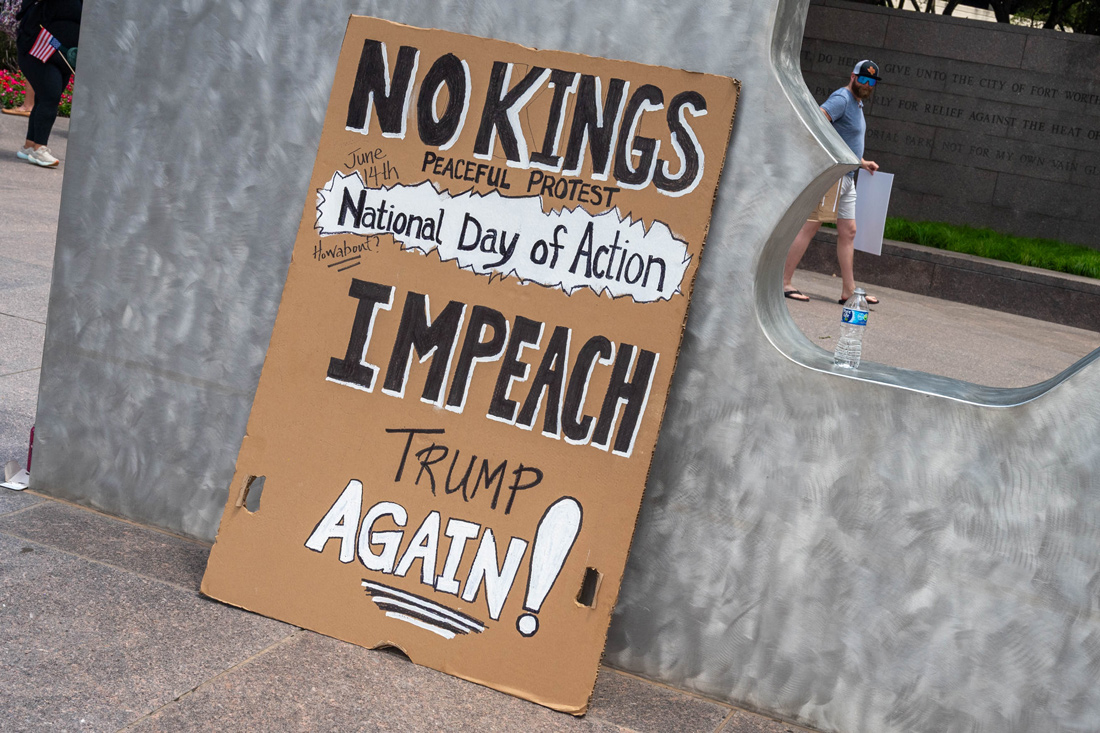 NO KINGS
June 14th
PEACEFUL PROTEST
National Day of Action
Howabout?
IMPEACH
TRUMP
AGAIN!
DO HE
GIVE UNTO THE CITY OF FORT WORTH
LY FOR RELIEF AGAINST THE HEAT OF
ORIAL PARK, NOT FOR MY OWN